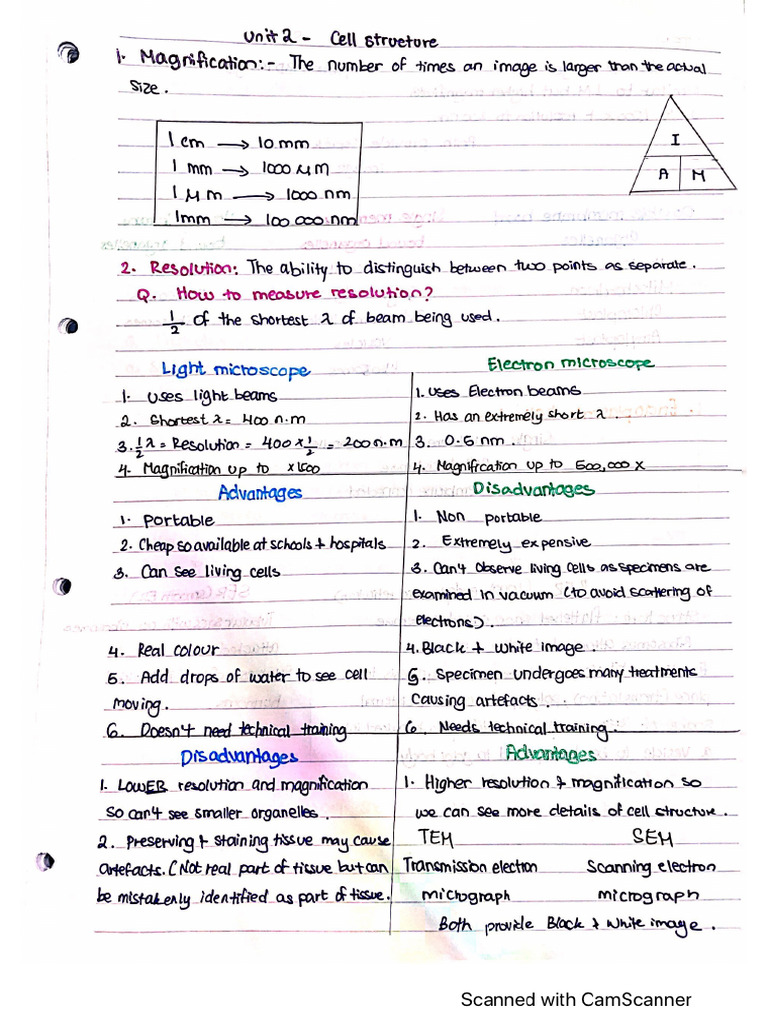 Unit 2 - Cell structure
1. Magnification:- The number of times an image is larger than the actual
size.
1 cm → 10 mm
1 mm → 1000 μm
1 μm → 1000 nm
1mm → 100 000 nm
I
A M
2. Resolution: The ability to distinguish between two points as separate.
Q. How to measure resolution?
1/2 of the shortest λ of beam being used.
Light microscope
1. Uses light beams
2. Shortest λ = 400 n.m
3. 1/2 λ = Resolution = 400 x 1/2 = 200 n.m
4. Magnification up to x1500
Advantages
1. Portable
2. Cheap so available at schools + hospitals
3. Can see living cells
4. Real colour
5. Add drops of water to see cell
moving.
6. Doesn't need technical training
Disadvantages
1. LOWER resolution and magnification
so can't see smaller organelles.
2. Preserving & staining tissue may cause
artefacts. (Not real part of tissue but can
be mistakenly identified as part of tissue.
Electron microscope
1. Uses Electron beams
2. Has an extremely short λ.
3. 0.5 nm.
4. Magnification up to 500,000 X
Disadvantages
1. Non portable
2. Extremely expensive
3. Can't observe living cells as specimens are
examined in vacuum (to avoid scattering of
electrons).
4. Black + white image
5. Specimen undergoes many treatments
causing artefacts.
6. Needs technical training.
Advantages
1. Higher resolution & magnification so
we can see more details of cell structure.
TEM SEM
Transmission electron Scanning electron
micrograph micrograph
Both provide Black & White image.
Scanned with CamScanner